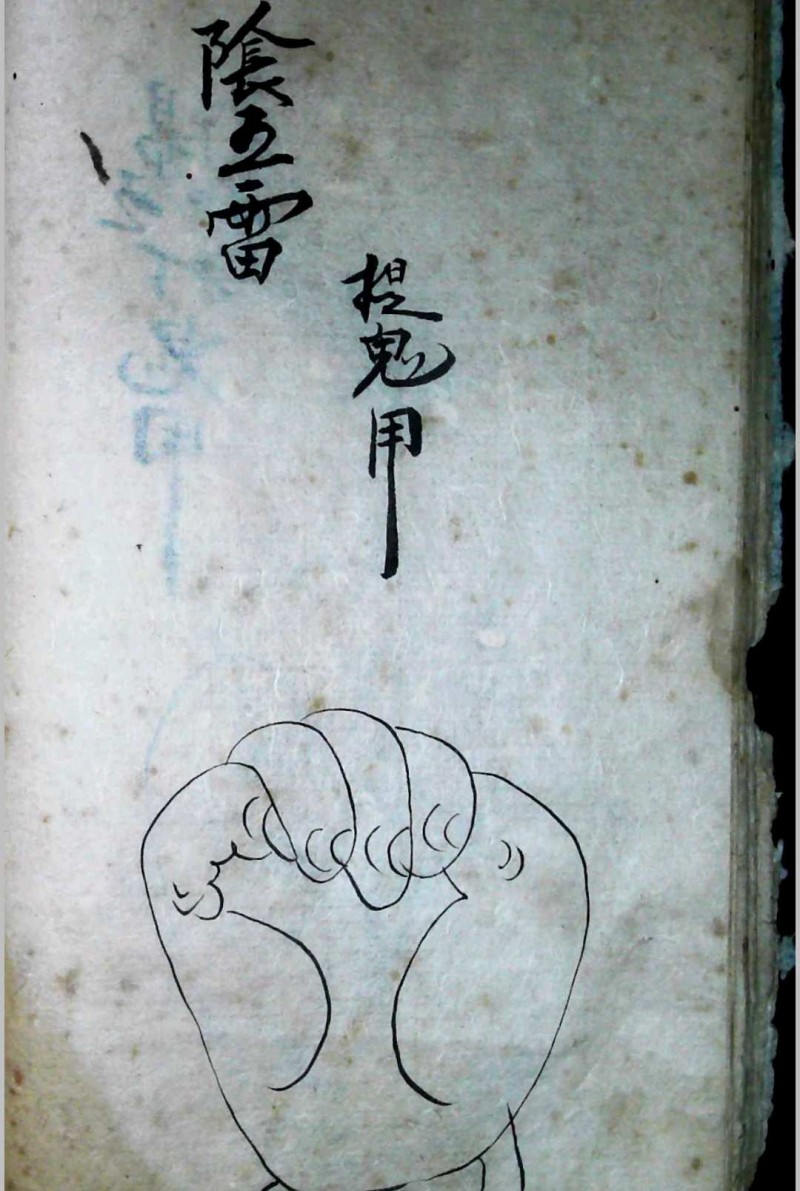 陰五雷
捉鬼用